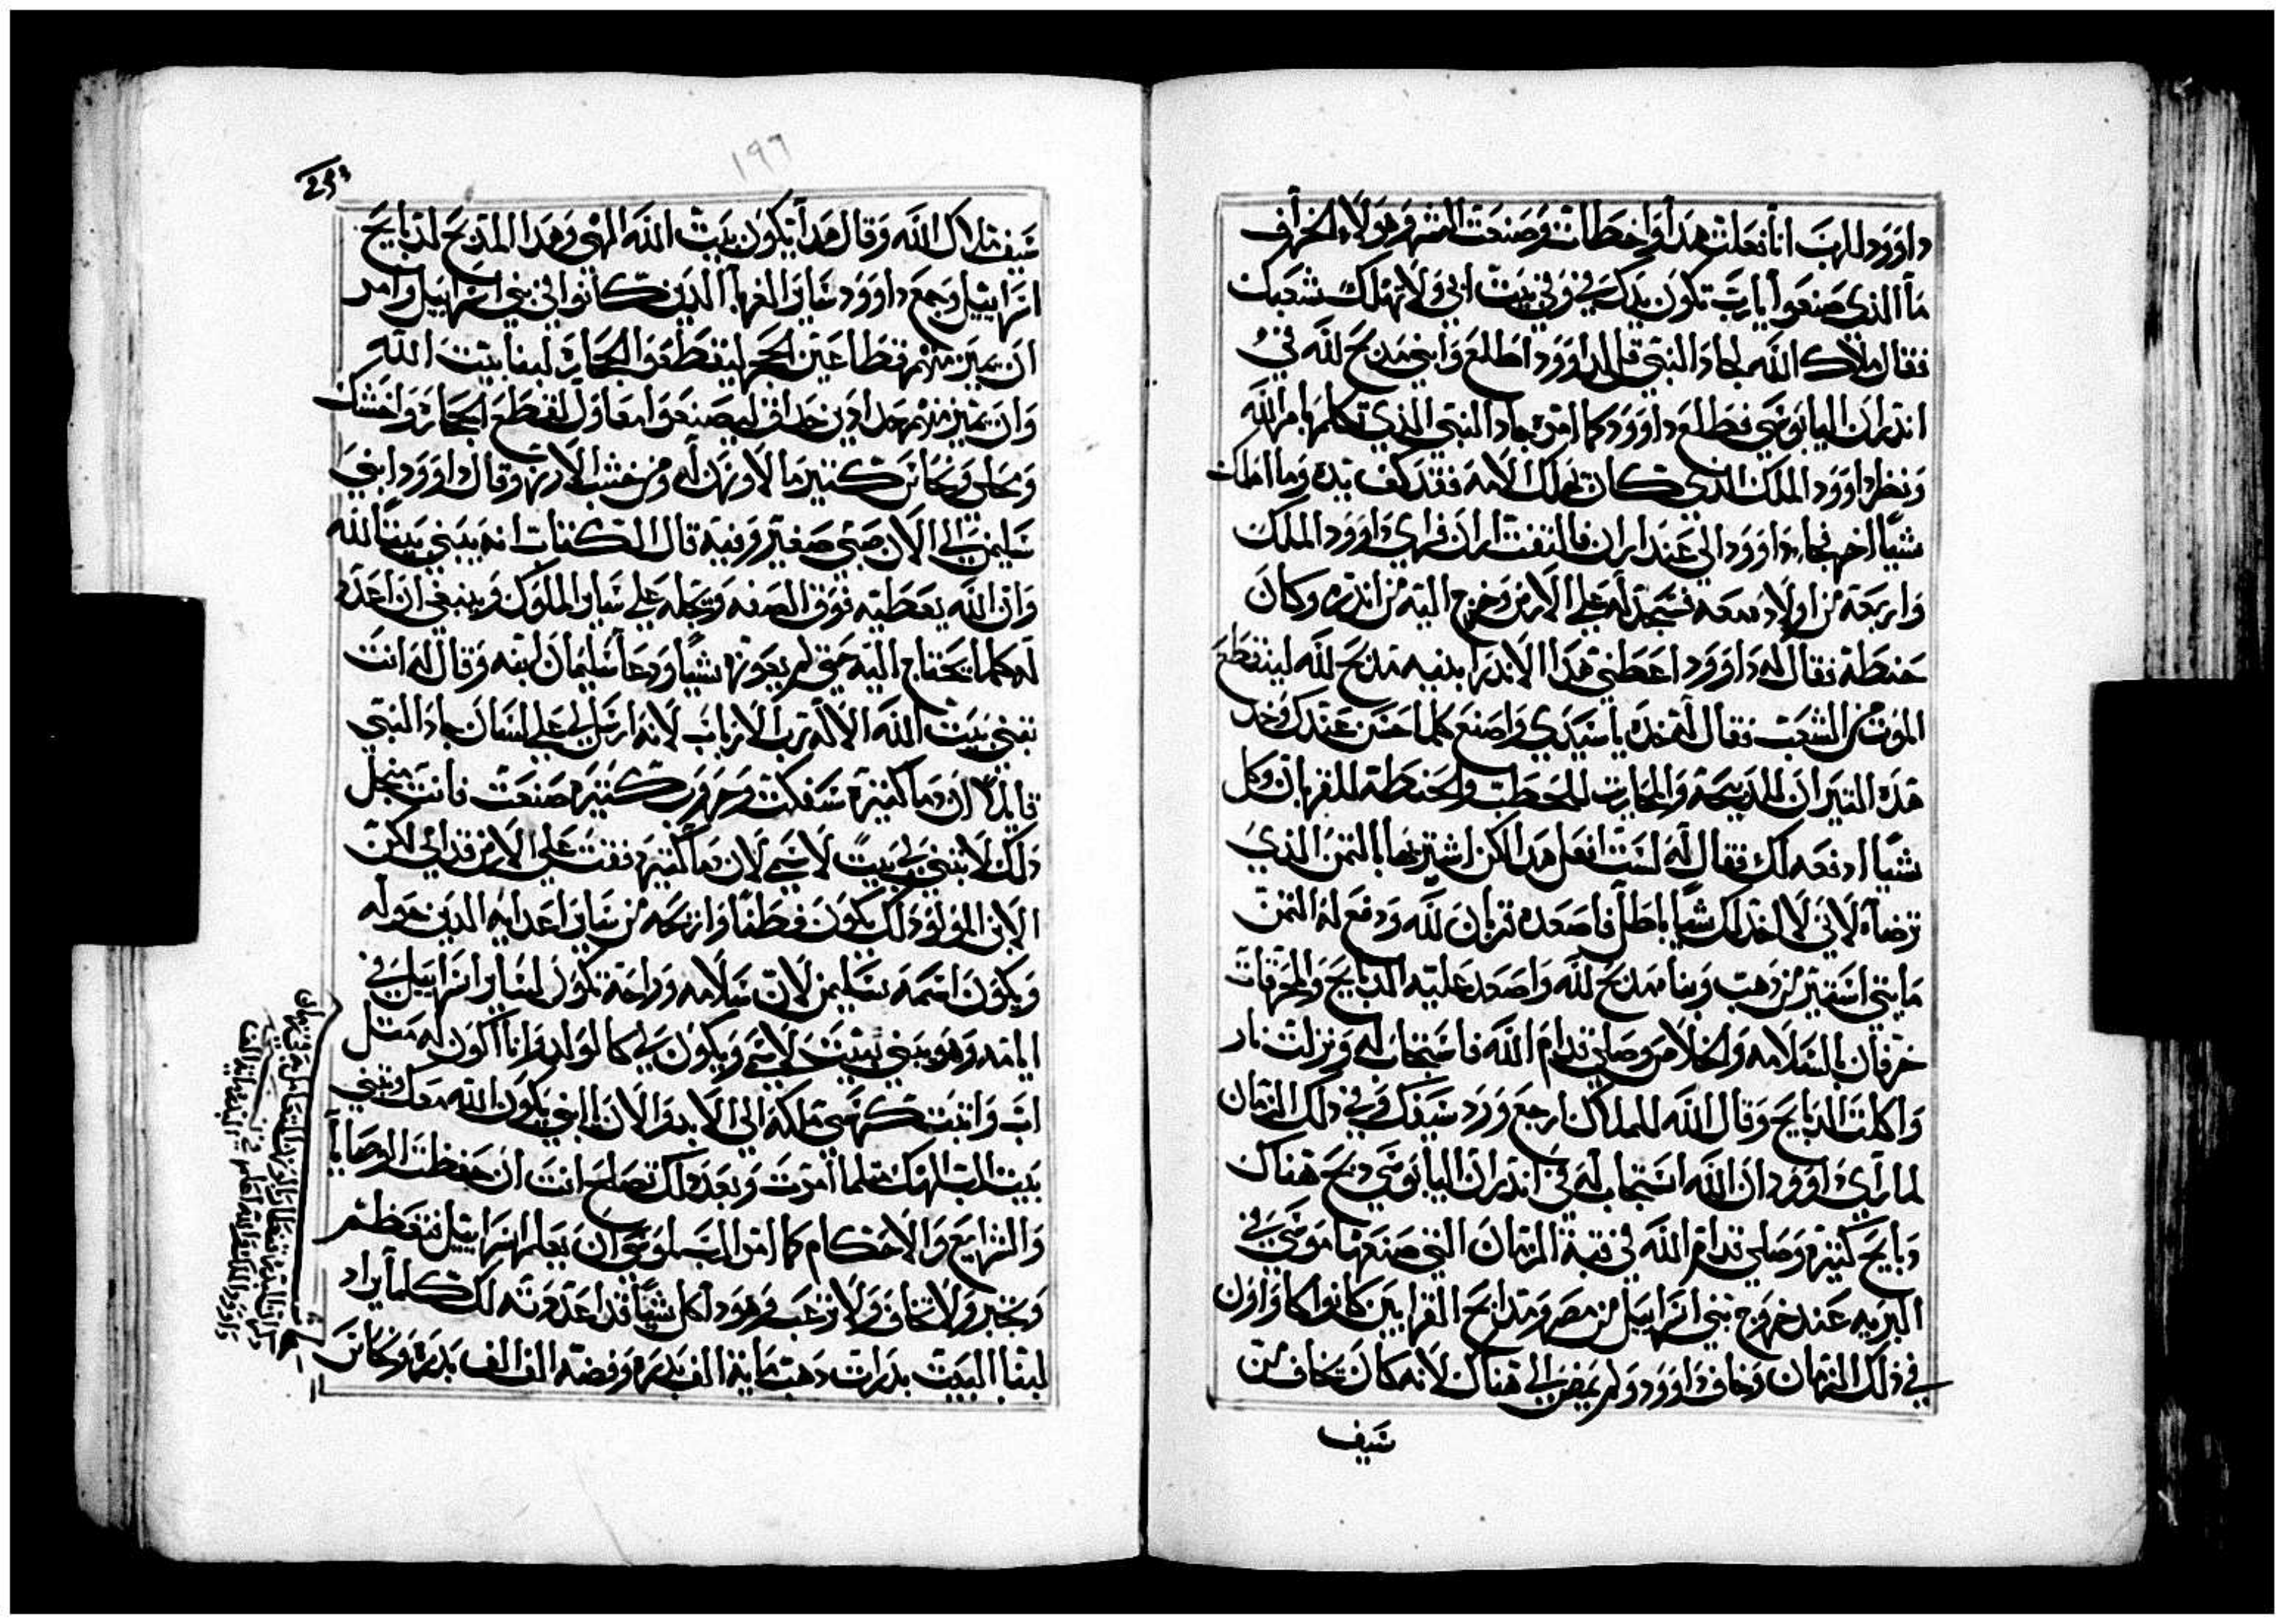 داوود للرب انا فعلت هدا واخطات وصنعت الشر وهولاء الخراف
ما الذي صنعوا يارب تكون يدك في وفي بيت ابي ولا تهلك شعبك
فقال ملاك الله لجاد النبي قل لداوود اطلع وابني مدبح لله في
اندران اليابوسي فطلع داوود كما امره جاد النبي الذي تكلم بامر الله
ونظر داوود الملك الذي كان يهلك الامه فقد كف يده وما اهلك
شيا اخر فجاء داوود الى عند اران فالتفت اران فراي داوود الملك
واربعة من اولاده معه فسجد له على الارض وخرج اليه من اندره وكان
حنطة فقال له داوود اعطني هدا الاندر ابنيه مدبح لله لينقطع
الموت من الشعب فقال له خده يا سيدي واصنع كلما حسن عندك وخد
هده التيران للدبيحة والمحاريت للحطب والحنطة للقربان وكل
شيا ادفعه لك فقال له لست افعل هدا لكن اشتريها بالتمن الذي
ترضاه لاني لا اخد لك شيا باطل فاصعده قربان لله ودفع له التمن
مايتي استير من دهب وبنا مدبح لله واصعد عليه الدبايح والمحرقات
خرفان السلامه والخلاص وصلى قدام الله فاستجاب له ونزلت نار
واكلت الدبايح وقال الله للملاك ارجع ورد سيفك وفي دلك الزمان
لما راى داوود ان الله استجاب له في اندران اليابوسي دبح هناك
دبايح كتيره وصلى قدام الله في قبة الزمان التي صنعها موسى في
البريه عند خروج بني اسراييل من مصر ومدابح القرابين كانوا كاواون
في ذلك الزمان وخاف داوود ولم يمض الى هناك لانه كان يخاف من
سيف
١٩٦
سيف ملاك الله وقال هدا يكون بيت الله الهي وهدا المدبح لدبايح
اسراييل وجمع داوود ساير الغربا الدين كانوا في بني اسراييل وامر
ان يميز منهم قطاعين الحجر ليقطعوا الحجاره لبنا بيت الله
وان يميز منهم حدادين حداق ليصنعوا معاول لقطع الحجاره واخشاب
ونحاس كتير ما لا وزن له ومن خشب الارز وقال داوود ابني
سليمن الى الان صبي صغير وفيه قال الكتاب انه يبني بيتا لله
وان الله يعطيه فوق الصفه ويجله على ساير الملوك وينبغي ان اعد
له كلما يحتاج اليه حتى لم يعوزه شيا ودعا سليمان ابنه وقال له انت
تبني بيت الله الاله رب الارباب لانه ارسل لي على لسان جاد النبي
قايلا لان دما كتيره سفكت وحروب كتيره صنعت فانت من اجل
دلك لا تبني لي بيت لاسمي لان دما كتيره دفقت على الارض قدامي لكن
الابن المولود لك يكون فطنا واريحه من ساير اعدايه الدين حوله
ويكون اسمه سليمن لان سلامه وراحة تكون لساير اسراييل في
ايامه وهو يبني بيت لاسمي ويكون لي كالولد وانا اكون له متل
اب واتبت كرسي ملكه الى الابد والان يا ابني يكون الله معك وتبني
بيت الرب الهك متلما امرت وبعد دلك تصلح انت ان حفظت الوصايا
والشرايع والاحكام كما امر الرب لموسى ان يعلم اسراييل فتعظم
وتجبر ولا تخاف ولا ترعب وهودا كل شيا قد اعددته لك كلما يراد
لبنا البيت بدرات دهب ماية الف بدره وفضه الف الف بدره ونحاس